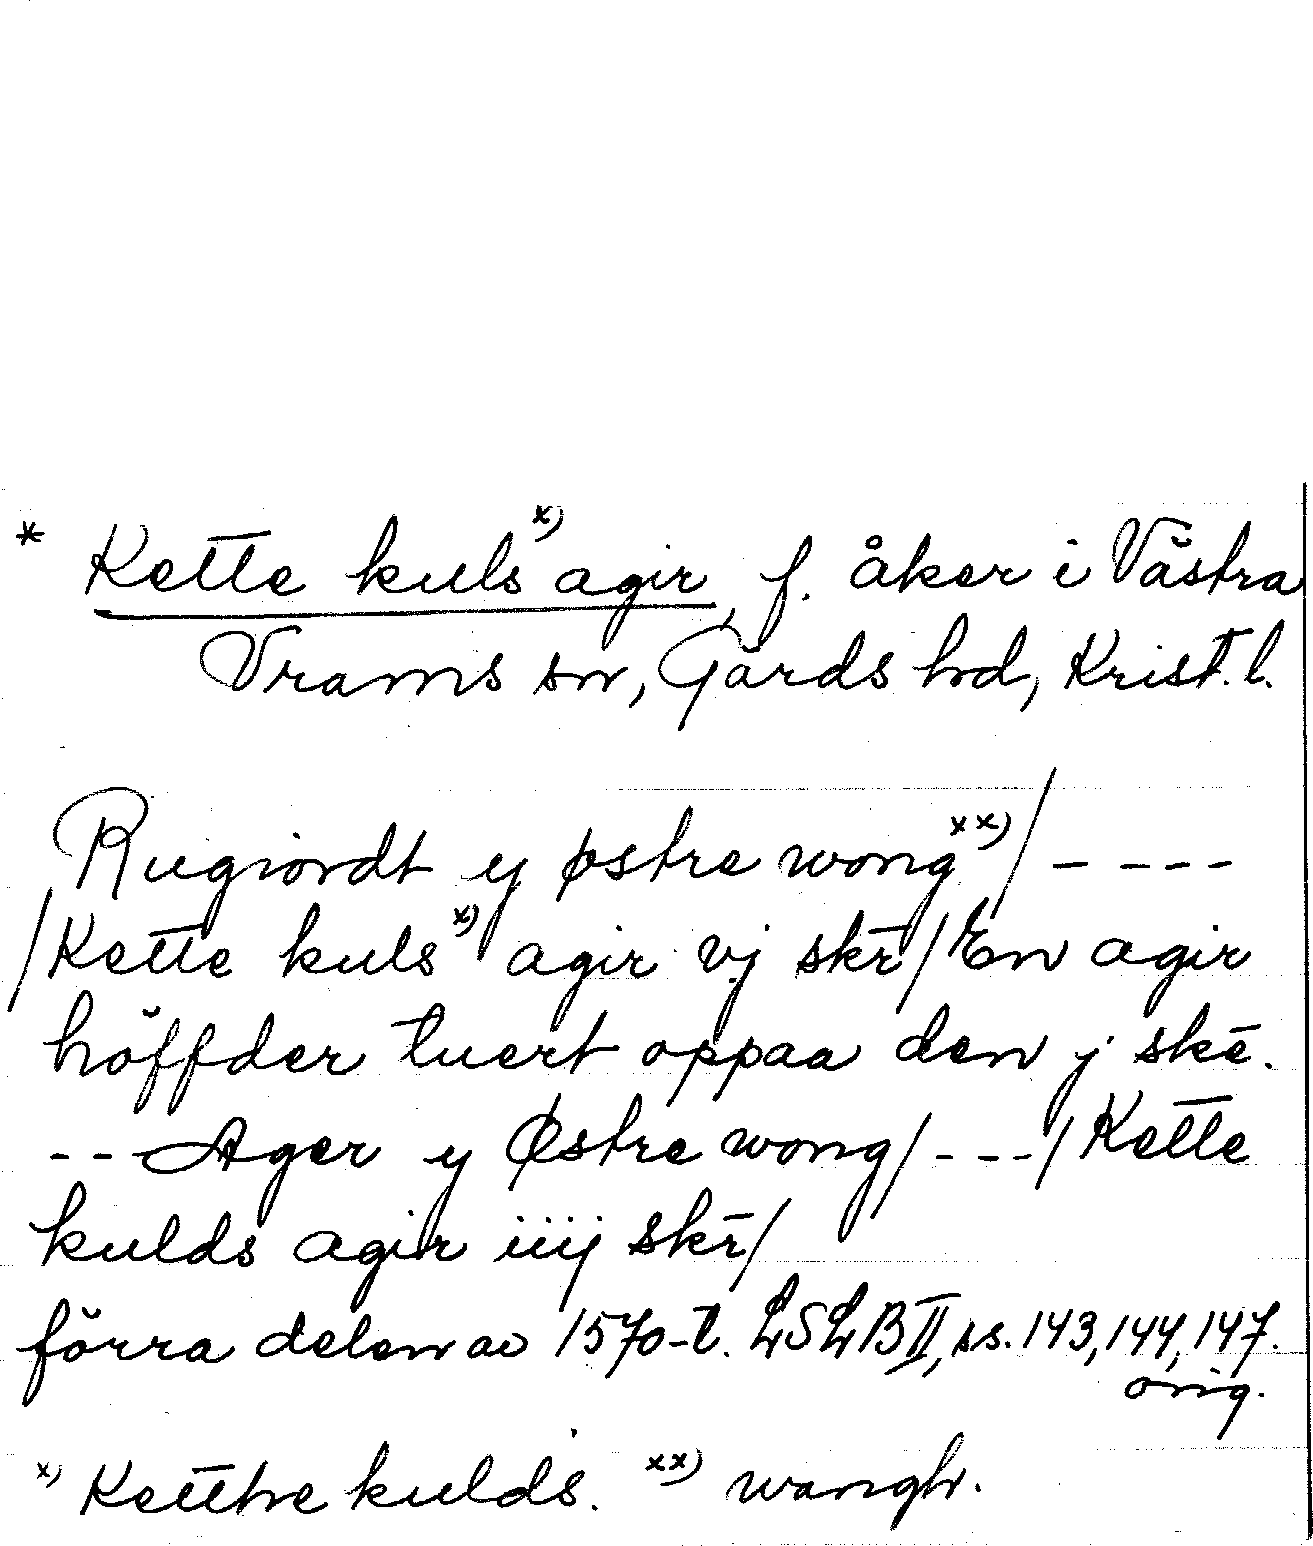 * Kette kuls x) agir, f. åker i Västra
Vrams sn, Gärds hd, Krist. l.
Rugiordt y østre wong xx) / - - - -
/ Kette kuls x) agir vj skr̄ / En agir
höffder tuert oppaa den j skē.
- - Ager y Østre wong / - - - / Kette
kulds agir iiij skr̄ /
förra delen av 1570-t. LSLB II, ss. 143, 144, 147.
orig.
x) Ketthe kulds. xx) wangh.